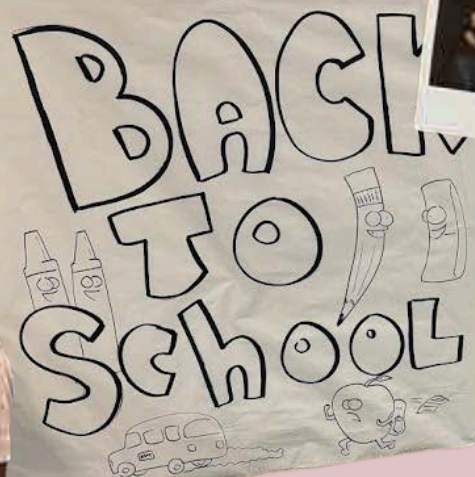 BACK
TO
SchOOL